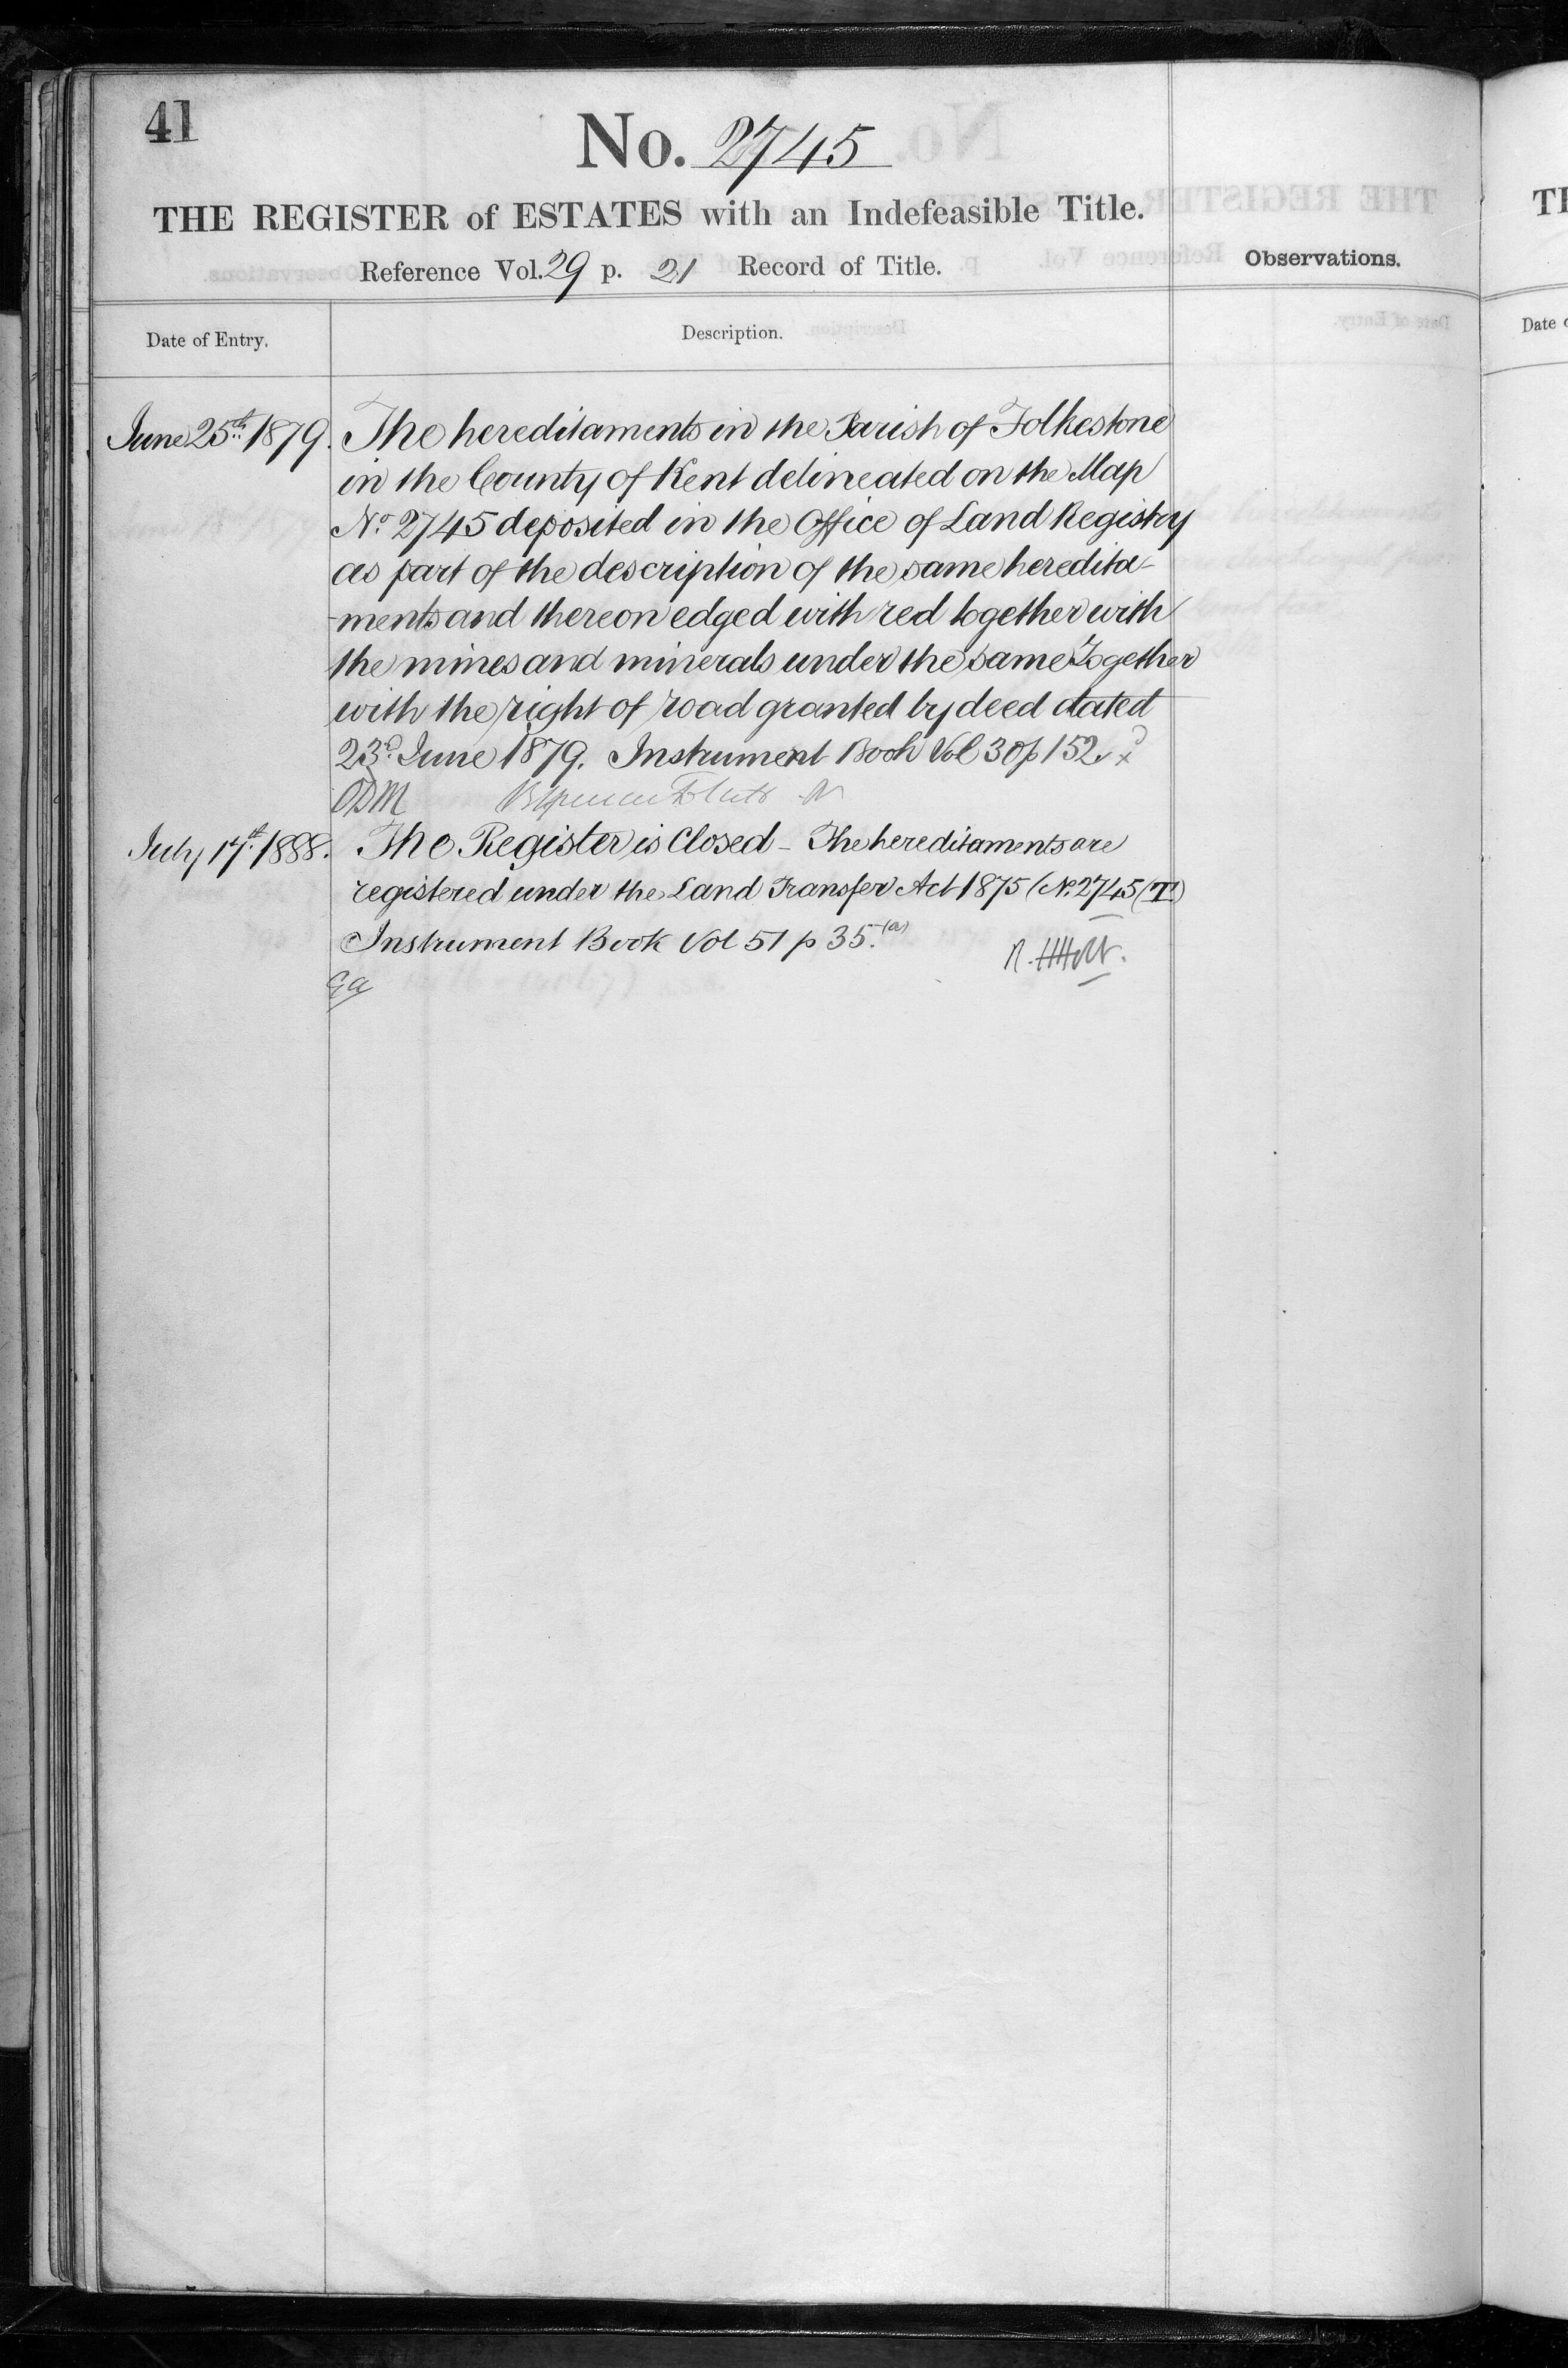 41
No. 2745
THE REGISTER of ESTATES with an Indefeasible Title.
Reference Vol. 29 p. 21 Record of Title.
Observations.
Date of Entry.
Description.
June 25th 1879.
The hereditaments in the Parish of Folkestone
in the County of Kent delineated on the Map
No. 2745 deposited in the Office of Land Registry
as part of the description of the same heredita-
-ments and thereon edged with red together with
the mines and minerals under the same Together
with the right of road granted by deed dated
23d. June 1879. Instrument Book Vol 30 p 152
ODM
July 17th 1888.
The Register is Closed - The hereditaments are
registered under the Land Transfer Act 1875 (No. 2745 (T.)
Instrument Book Vol 51 p 35. (a)